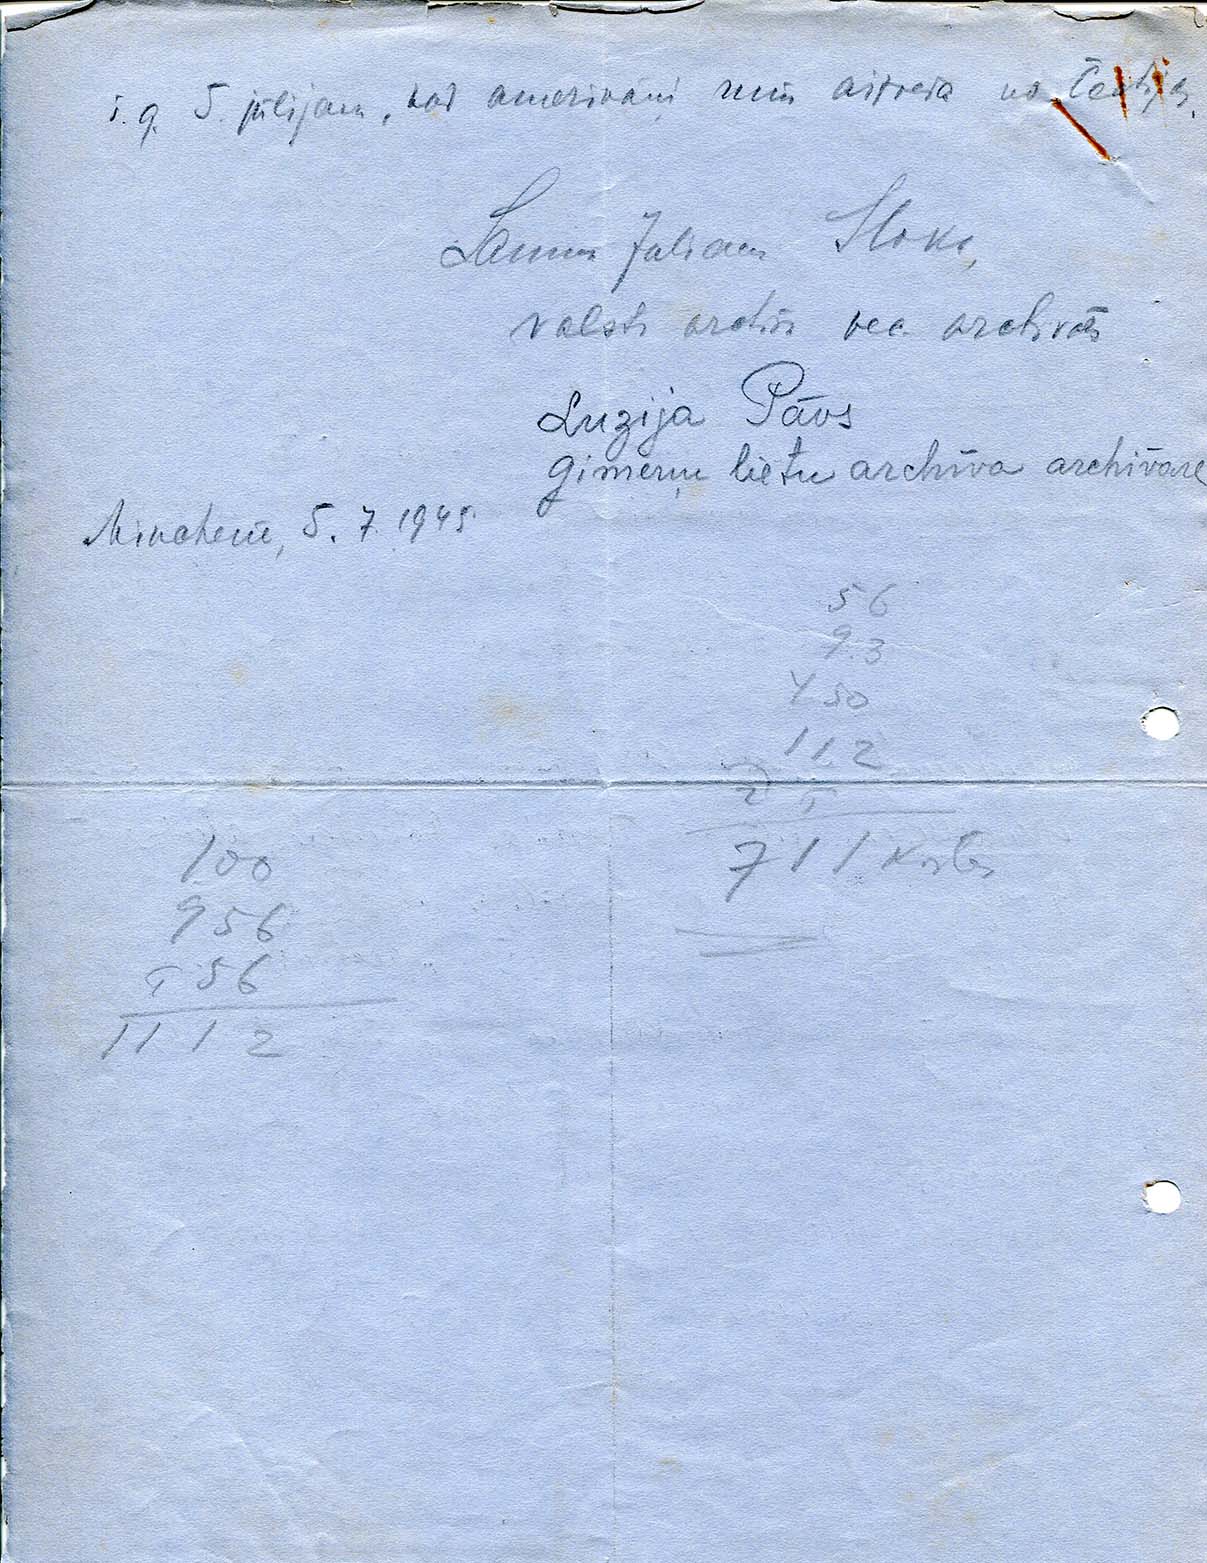 š. g. 5. jūlijam, kad amerikāņi mūs aizveda no Čechijas.
Juliana Sloka,
valsts archīva vec. archivārs
Luzija Pāvs
ģimeņu lietu archīva archivāre
Minchenē, 5. 7. 1945.
56
93
450
112
711
100
956
56
1112